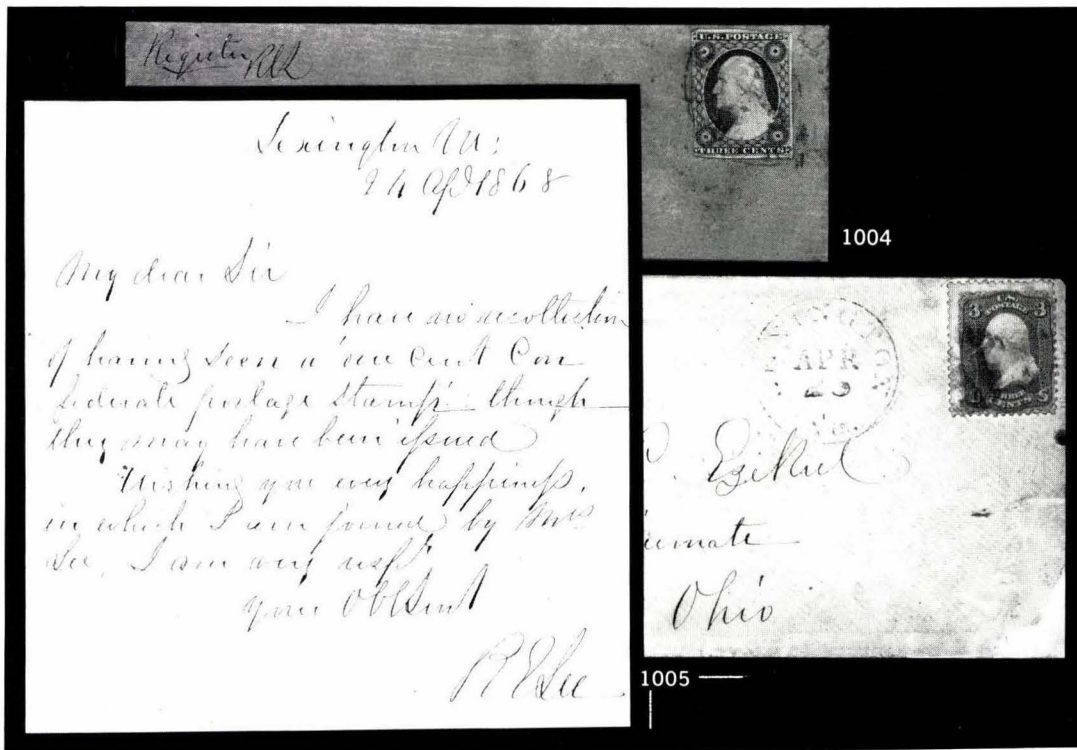 Register REL
U.S. POSTAGE
THREE CENTS
1004
Lexington Va:
24 Apl 1868
My dear Sir
I have no recollection
of having seen a one cent Con
federate postage stamp: though
they may have been issued
Wishing you every happiness,
in which I am joined by Mrs
Lee, I am very respy
your Obt Servt
R E Lee
LEXINGTON
APR
23
Va.
3 U.S. 3
POSTAGE
CENTS
Ezekiel
Ohio
1005